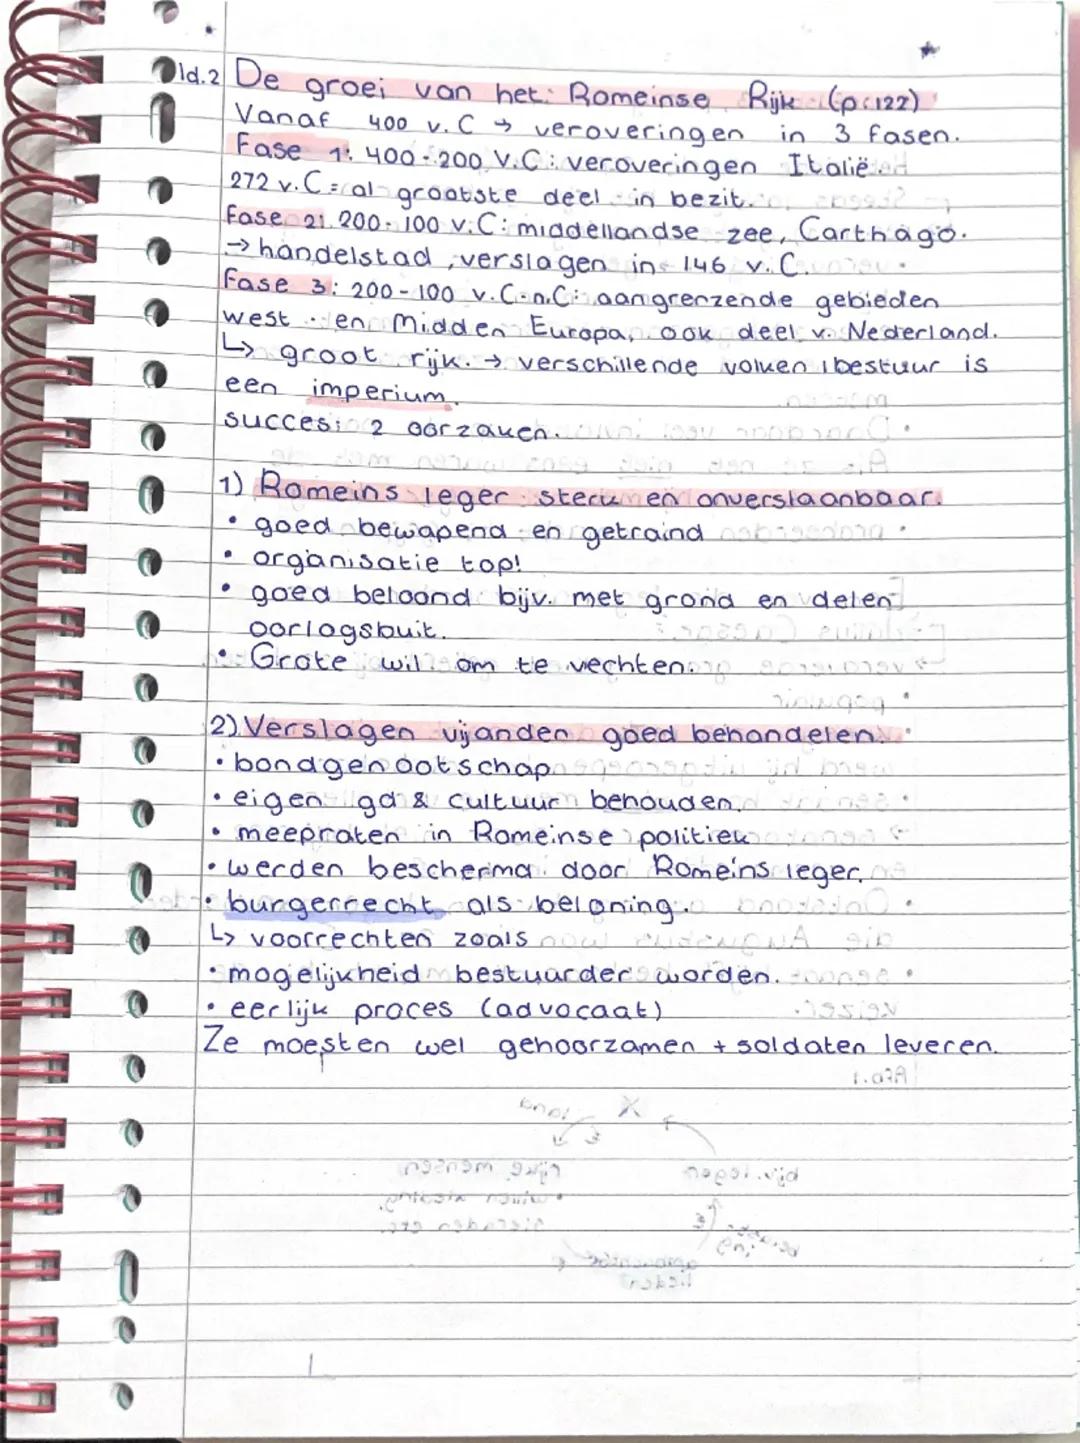 ld.2 De groei van het Romeinse Rijk (p.122)
Vanaf 400 v.C → veroveringen in 3 fasen.
Fase 1: 400-200 v.C: veroveringen Italië.
272 v.C = al grootste deel in bezit.
Fase 2: 200-100 v.C: middellandse zee, Carthago.
→ handelstad, verslagen in 146 v.C.
Fase 3: 200-100 v.C-n.C: aangrenzende gebieden
west- en Midden Europa, ook deel v. Nederland.
↳ groot rijk. → verschillende volken 1 bestuur is
een imperium.
succes: 2 oorzaken.
1) Romeins leger sterk en onverslaanbaar.
• goed bewapend en getraind
• organisatie top!
• goed beloond bijv. met grond en delen
oorlogsbuit.
• Grote wil om te vechten.
2) Verslagen vijanden goed behandelen.
• bondgenootschap
• eigen gd & cultuur behouden.
• meepraten in Romeinse politiek
• werden beschermd door Romeins leger.
• burgerrecht als beloning.
↳ voorrechten zoals
• mogelijkheid bestuurder worden.
• eerlijk proces (advocaat)
Ze moesten wel gehoorzamen + soldaten leveren.